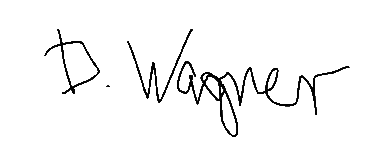 D. Wagner